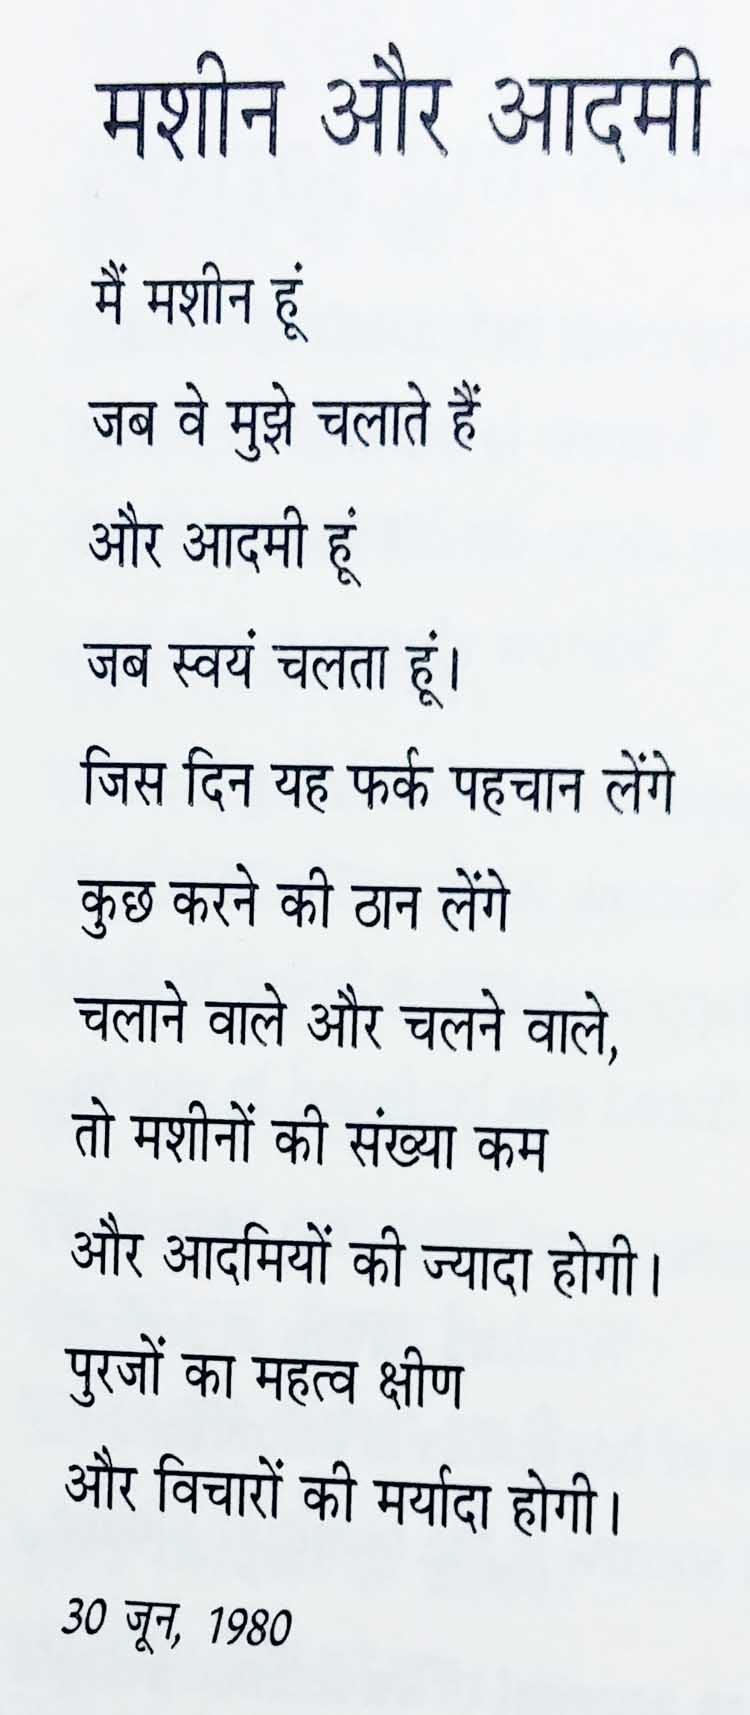 मशीन और आदमी
मैं मशीन हूं
जब वे मुझे चलाते हैं
और आदमी हूं
जब स्वयं चलता हूं।
जिस दिन यह फर्क पहचान लेंगे
कुछ करने की ठान लेंगे
चलाने वाले और चलने वाले,
तो मशीनों की संख्या कम
और आदमियों की ज्यादा होगी।
पुरजों का महत्व क्षीण
और विचारों की मर्यादा होगी।
30 जून, 1980